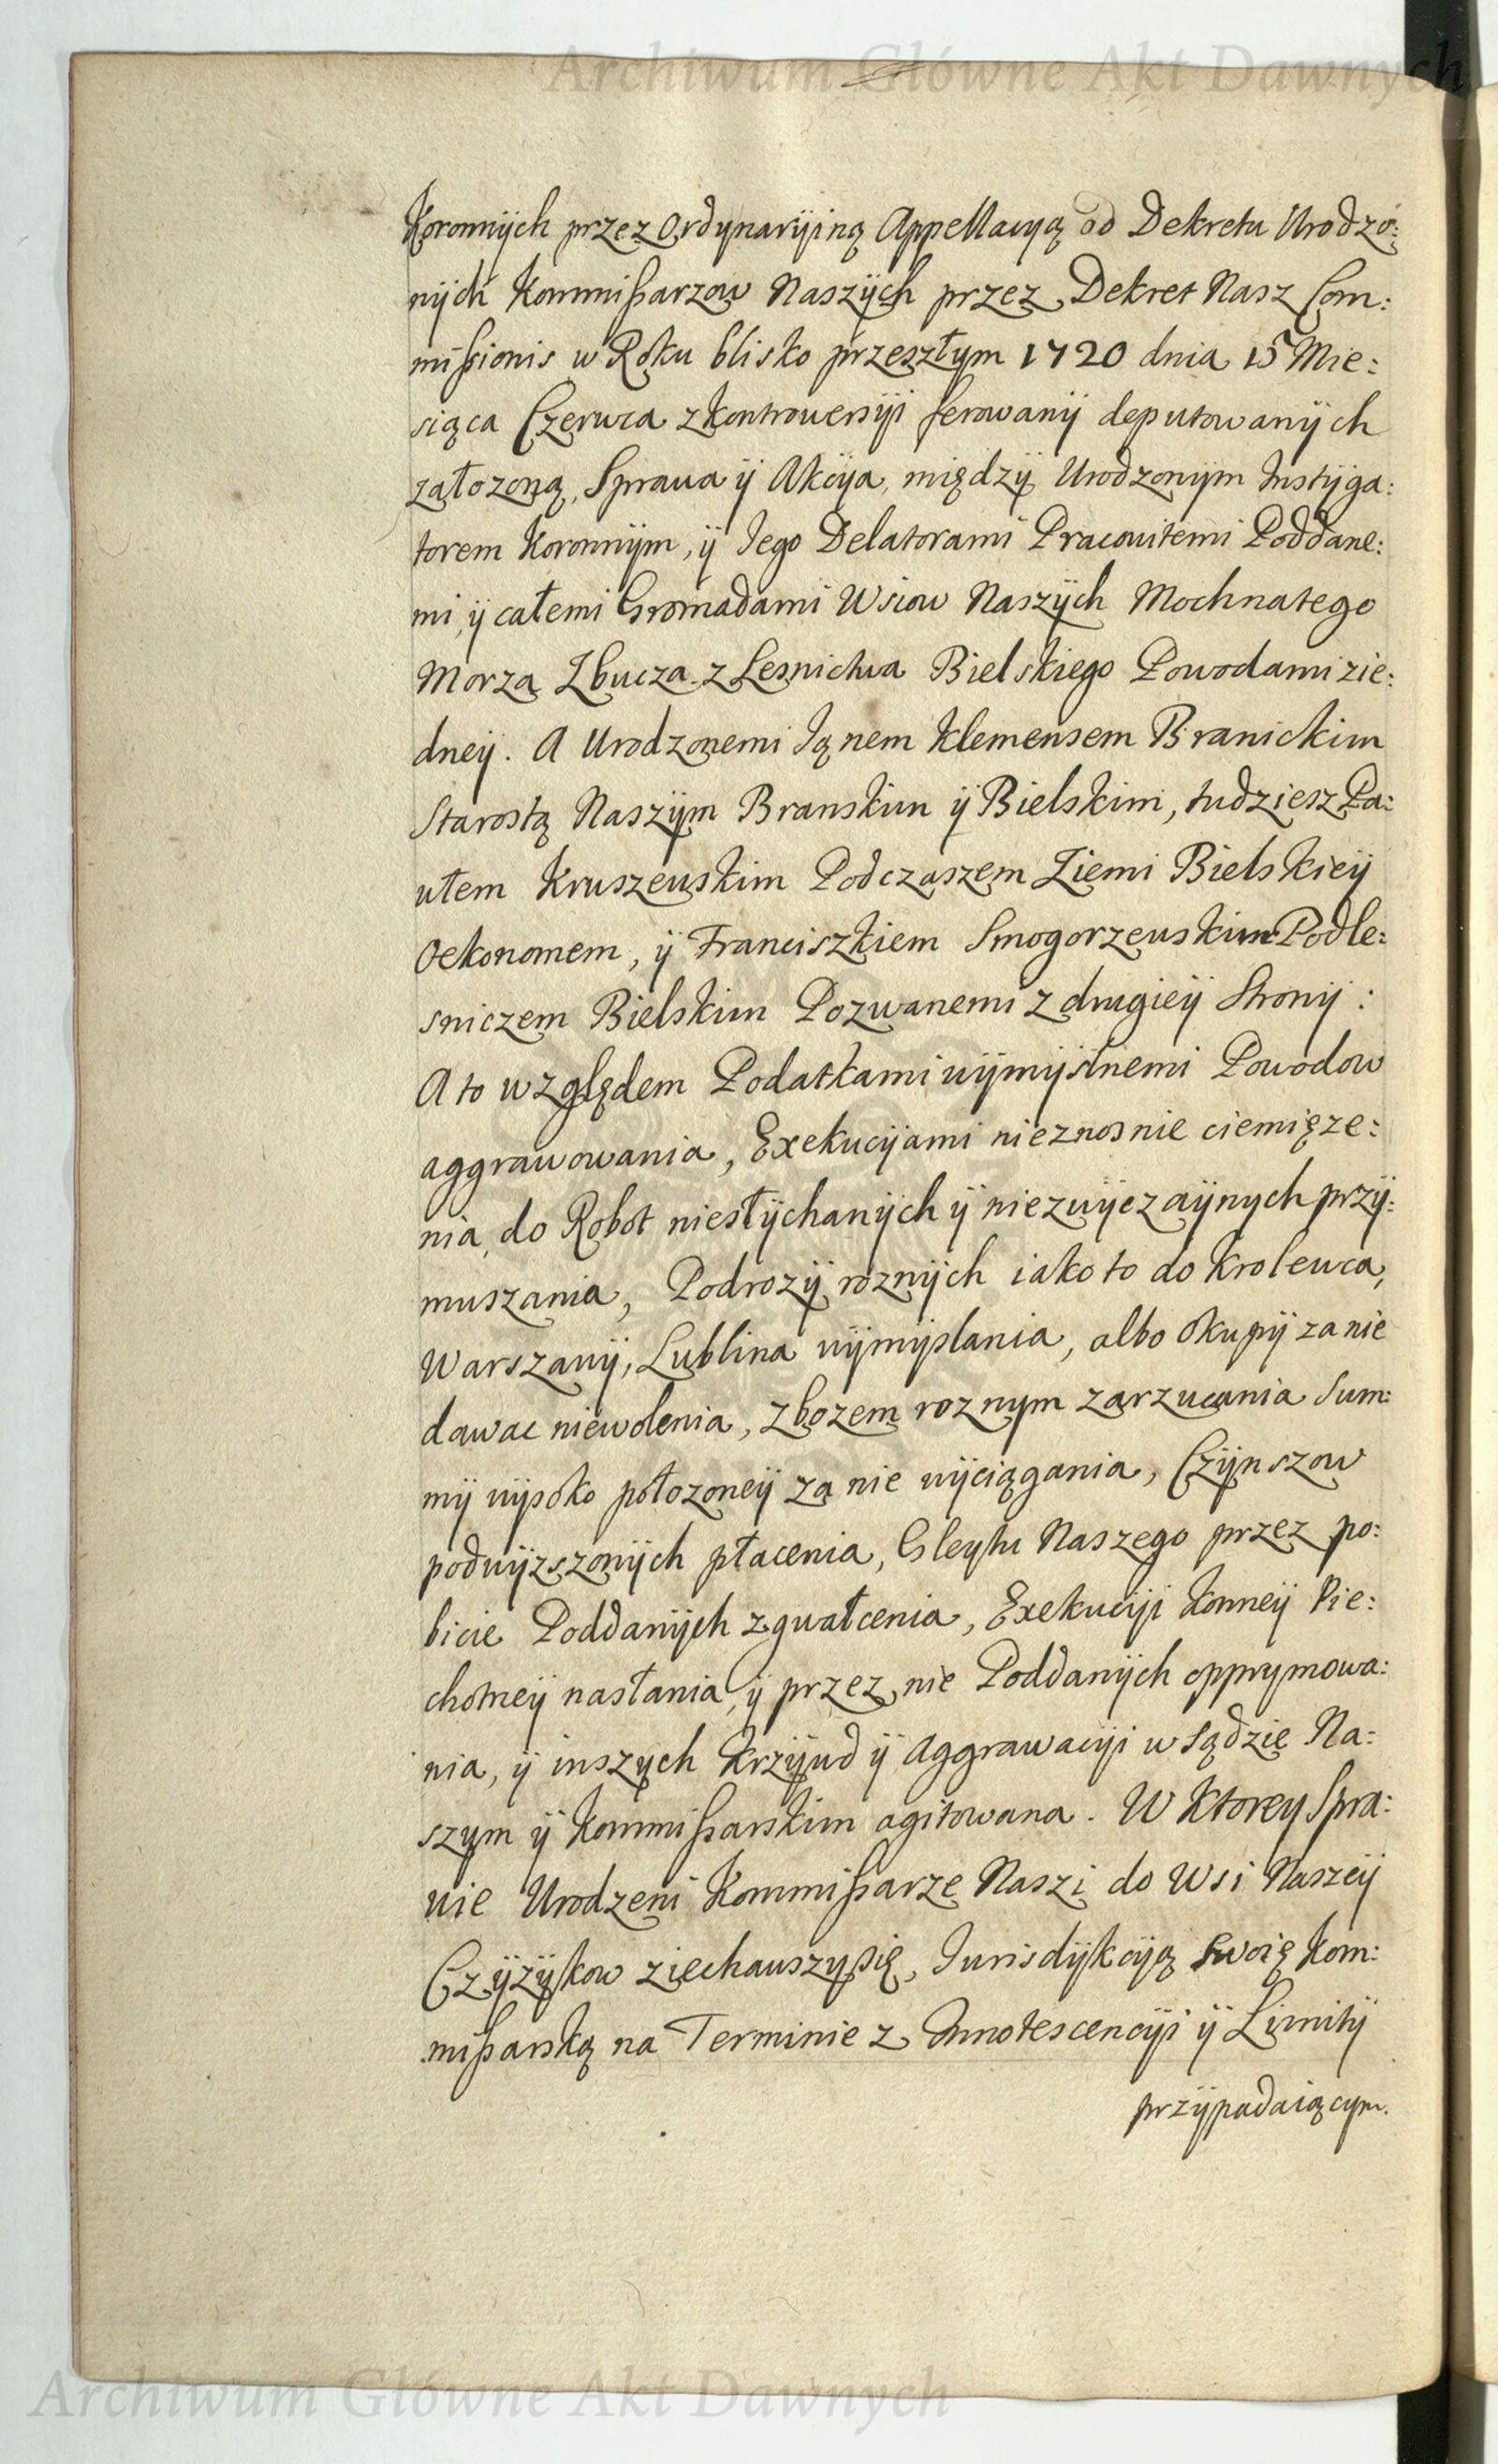 Archiwum Główne Akt Dawnych
Koronnÿch przez Ordynarÿiną Appellacyą od Dekretu Urodzo:
nÿch Kommißarzow Naszÿch przez Dekret Nasz Com:
mißionis w Roku blisko przeszłym 1720 dnia 15 Mie:
siąca Czerwca z kontrowersÿi ferowanÿ deputowanÿch
załozoną, Sprawa ÿ Akcÿa, międzÿ Urodzonÿm Instÿga:
torem Koronnÿm, ÿ Jego Delatorami Pracowitemi Poddane:
mi, ÿ całemi Gromadami Wsiow Naszÿch Mochnatego
Morza Zbucza z Lesnictwa Bielskiego Powodami z ie:
dneÿ. A Urodzonemi Janem Klemensem Branickim
Starostą Naszÿm Branskim ÿ Bielskim, tudziesz Pa:
włem Kruszewskim Podczaszem Ziemi Bielskieÿ
Oekonomem, ÿ Franciszkiem Smogorzewskim Podle:
sniczem Bielskim Pozwanemi z drugieÿ Stronÿ:
A to względem Podatkami wÿmÿslnemi Powodow
aggrawowania, Exekucÿami nieznosnie ciemięze:
nia, do Robot niesłÿchanÿch ÿ niezwÿczaÿnych przÿ:
muszania, Podrozÿ roznÿch iako to do Krolewca,
Warszawÿ, Lublina wÿmÿslania, albo Okupÿ za nie
dawac niewolenia, zbozem roznym zarzucania Sum:
mÿ wÿsoko połozoneÿ za nie wÿciągania, Czÿnszow
podwÿzszonÿch płacenia, Gleytu Naszego przez po:
bicie Poddanÿch zgwałcenia, Exekucÿi Konneÿ Pie:
chotneÿ nasłania, ÿ przez nie Poddanÿch opprymowa:
nia, ÿ inszÿch krzÿwd ÿ Aggrawacÿi w Sądzie Na:
szym ÿ Kommißarskim agitowana. W Ktorey Spra:
wie Urodzeni Kommißarze Naszi do Wsi Naszeÿ
Czÿzÿkow ziechawszy się, Jurisdÿkcÿą Swoię Kom:
mißarską na Terminie z Innotescencÿi ÿ Limitÿ
przÿpadaiącym.
Archiwum Główne Akt Dawnych